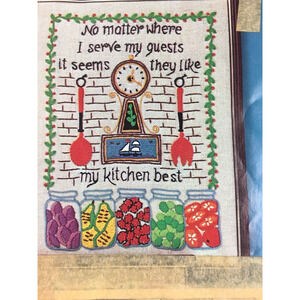 No matter where
I serve my guests
it seems they like
my kitchen best